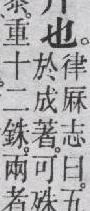 律厤志曰五
也。於成著可殊
重十二銖。兩者